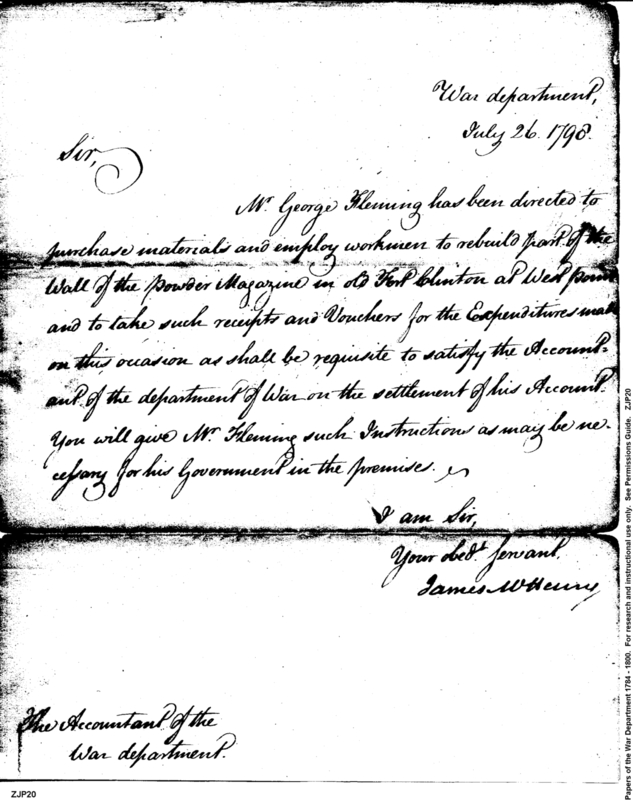 War department,
July 26. 1798.
Sir,
Mr. George Fleming has been directed to
purchase materials and employ workmen to rebuild part of the
Wall of the Powder Magazine in old Fort Clinton at West Point
and to take such receipts and Vouchers for the Expenditures made
on this occasion as shall be requisite to satisfy the Account-
ant of the department of War on the settlement of his Account.
You will give Mr. Fleming such Instructions as may be ne-
cessary for his Government in the premises.
I am Sir,
Your obedt. servant.
James McHenry
The Accountant of the
War department.
ZJP20
Papers of the War Department 1784 - 1800. For research and instructional use only. See Permissions Guide. ZJP20